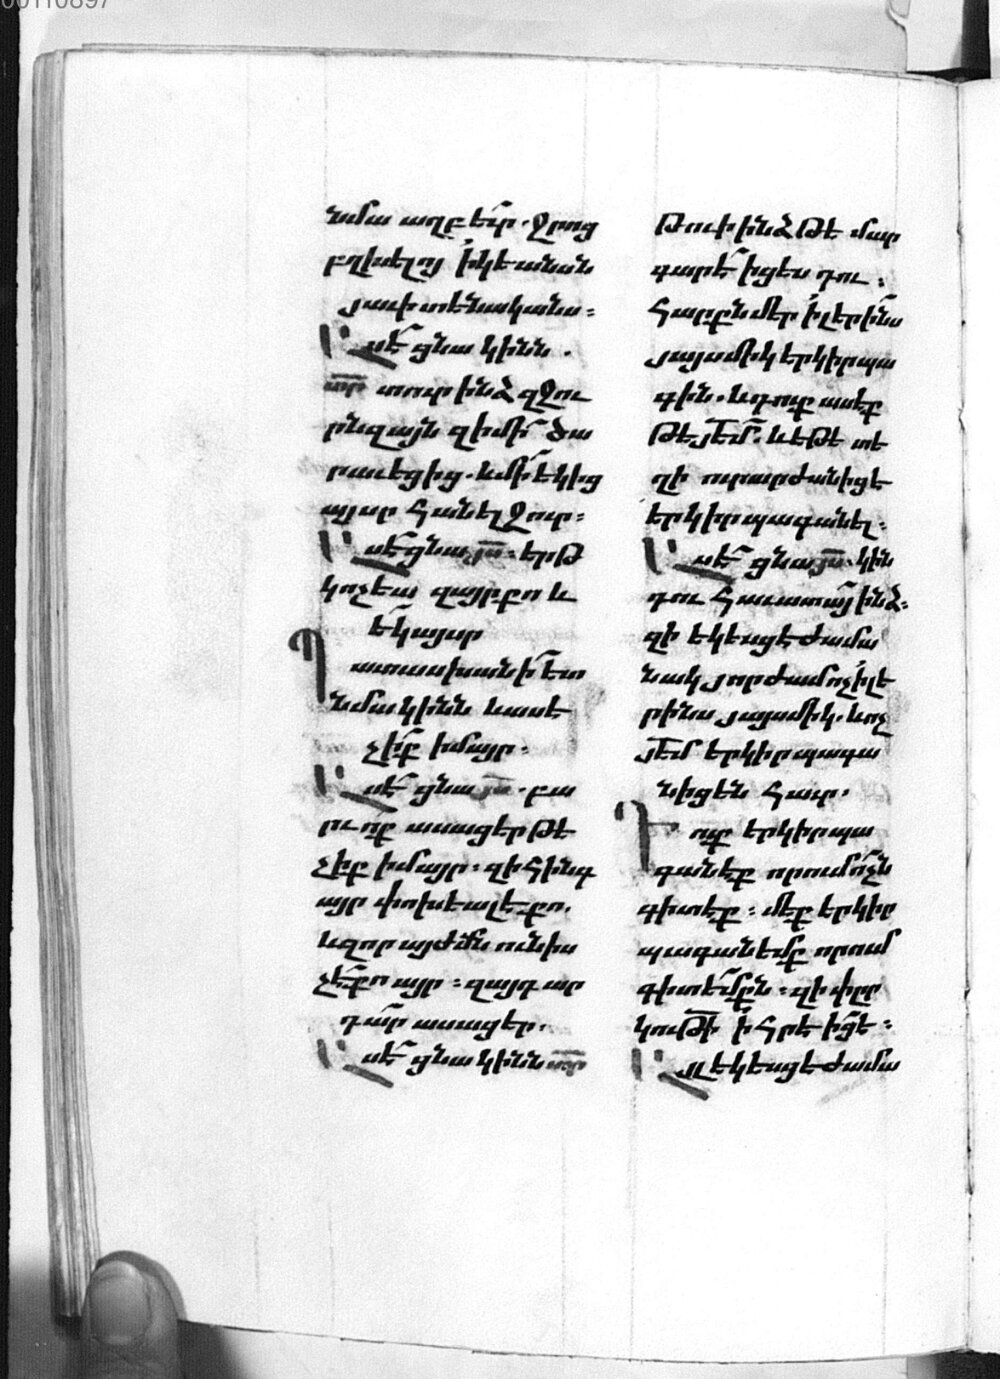 00110897
նմա աղբեւր. ջրոց
բղխելոյ ի կեանսն
յաւիտենականս։
Ասէ ցնա կինն.
տր տուր ինձ զջու
րնզայն զի մի ծա
րաւեցից. և մի եկից
այսր հանել ջուր։
Ասէ ցնա յս։ երթ
կոչեա զայրքո և
եկ այսր
Պատասխանի ետ
նմա կինն և ասէ
չիք իմ այր։
Ասէ ցնա յս. բա
րւոք ասացեր թէ
չիք իմ այր։ զի հինգ
այր փոխեալ է քո.
և զոր այժմն ունիս
չէ քո այր։ զայդ ար
դար ասացեր.
Ասէ ցնա կինն տր
Թուի ինձ թէ մար
գարէ իցես դու։
Հարքն մեր ի լերինս
յայսմիկ երկիր պա
գին. և դուք ասէք
թէ յԵմ. և եթէ տե
ղի ուր արժանից է
երկիր պագանել։
Ասէ ցնա յս. կին
դու հաւատայ ինձ։
զի եկեսցէ ժամա
նակ յորժամ ոչ ի լե
րինս յայսմիկ. և ոչ
յԵմ երկիր պագա
նիցեն հաւր.
Դուք երկիր պա
գանէք որում ոչն
գիտէք։ մեք երկիր
պագանեմք որում
գիտեմքն։ զի փրկ
ութի ի հրէից է։
Այլ եկեսցէ ժամա